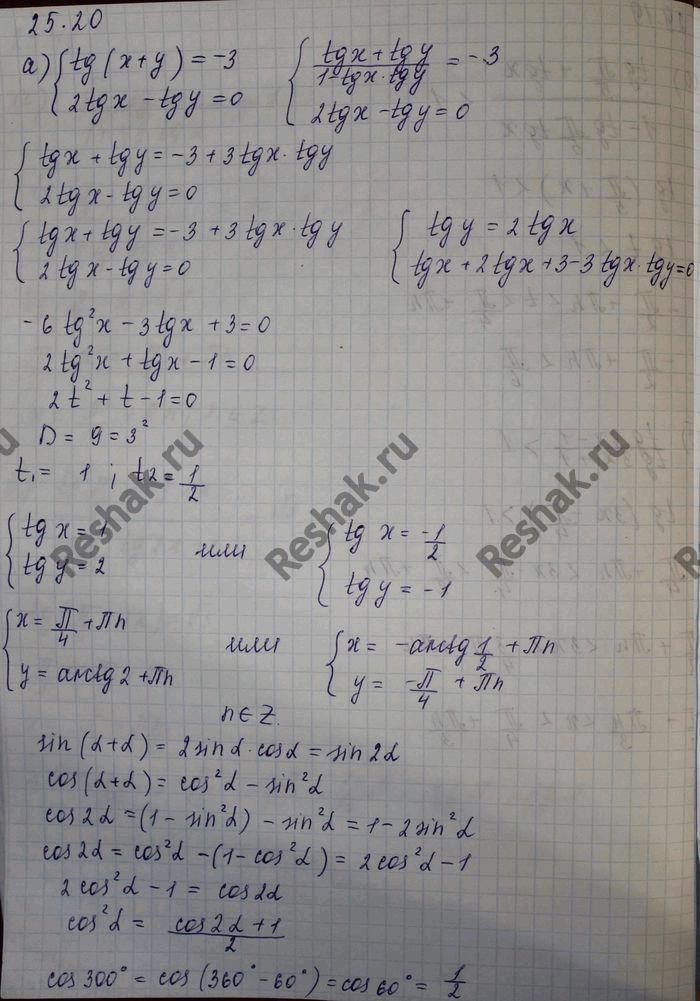 25.20
а) { tg(x+y) = -3
2tgx - tgy = 0
{ (tgx + tgy)/(1-tgx·tgy) = -3
2tgx - tgy = 0
{ tgx + tgy = -3 + 3tgx·tgy
2tgx - tgy = 0
{ tgx + tgy = -3 + 3tgx·tgy
2tgx - tgy = 0
{ tgy = 2tgx
tgx + 2tgx + 3 - 3tgx·tgy = 0
-6tg²x - 3tgx + 3 = 0
2tg²x + tgx - 1 = 0
2t² + t - 1 = 0
D = 9 = 3²
t₁ = 1 ; t2 = 1/2
{ tgx = 1
tgy = 2
или
{ tg x = -1/2
tgy = -1
{ x = π/4 + πn
y = arctg2 + πn
или
{ x = -arctg 1/2 + πn
y = -π/4 + πn
n ∈ Z.
sin(α+α) = 2sinα·cosα = sin2α
cos(α+α) = cos²α - sin²α
cos2α = (1 - sin²α) - sin²α = 1 - 2sin²α
cos2α = cos²α - (1 - cos²α) = 2cos²α - 1
2cos²α - 1 = cos2α
cos²α = (cos2α + 1)/2
cos300° = cos(360° - 60°) = cos60° = 1/2
Reshak.ru
Reshak.ru